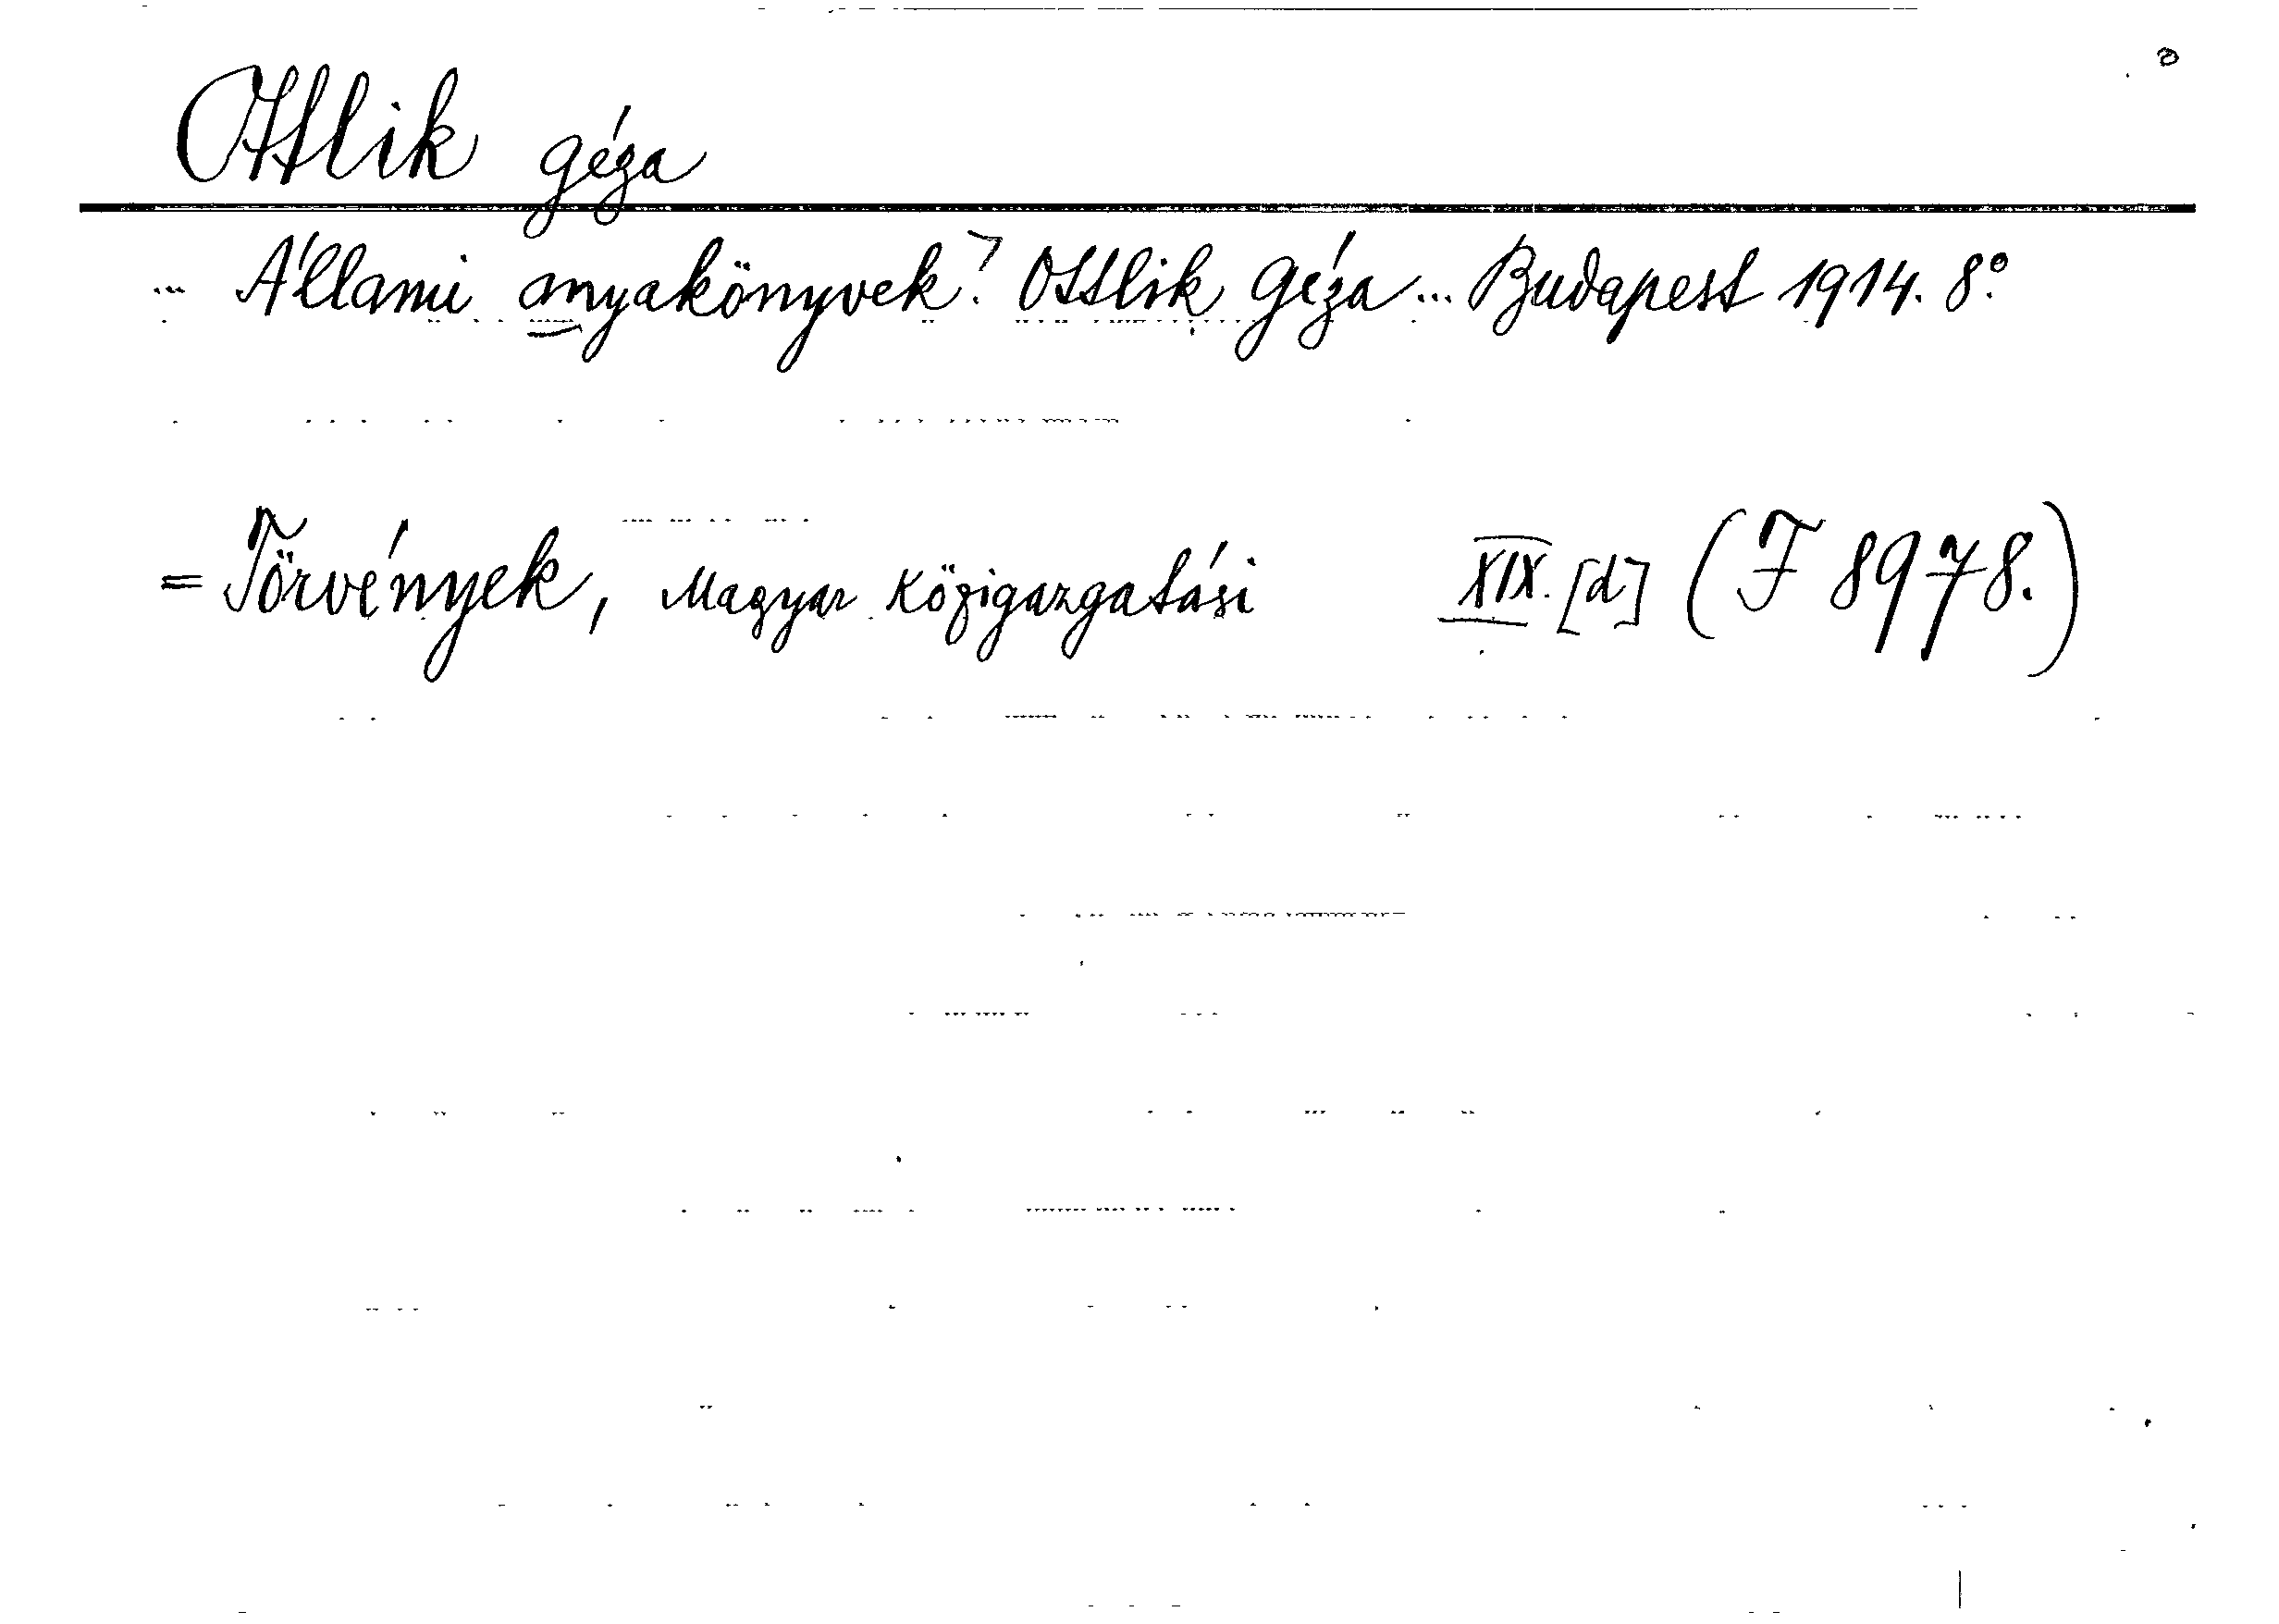 Ottlik Géza
... Állami anyakönyvek? Ottlik Géza ... Budapest 1914. 8°
= Törvények, Magyar közigazgatási XIX. [d] (F 8978.)